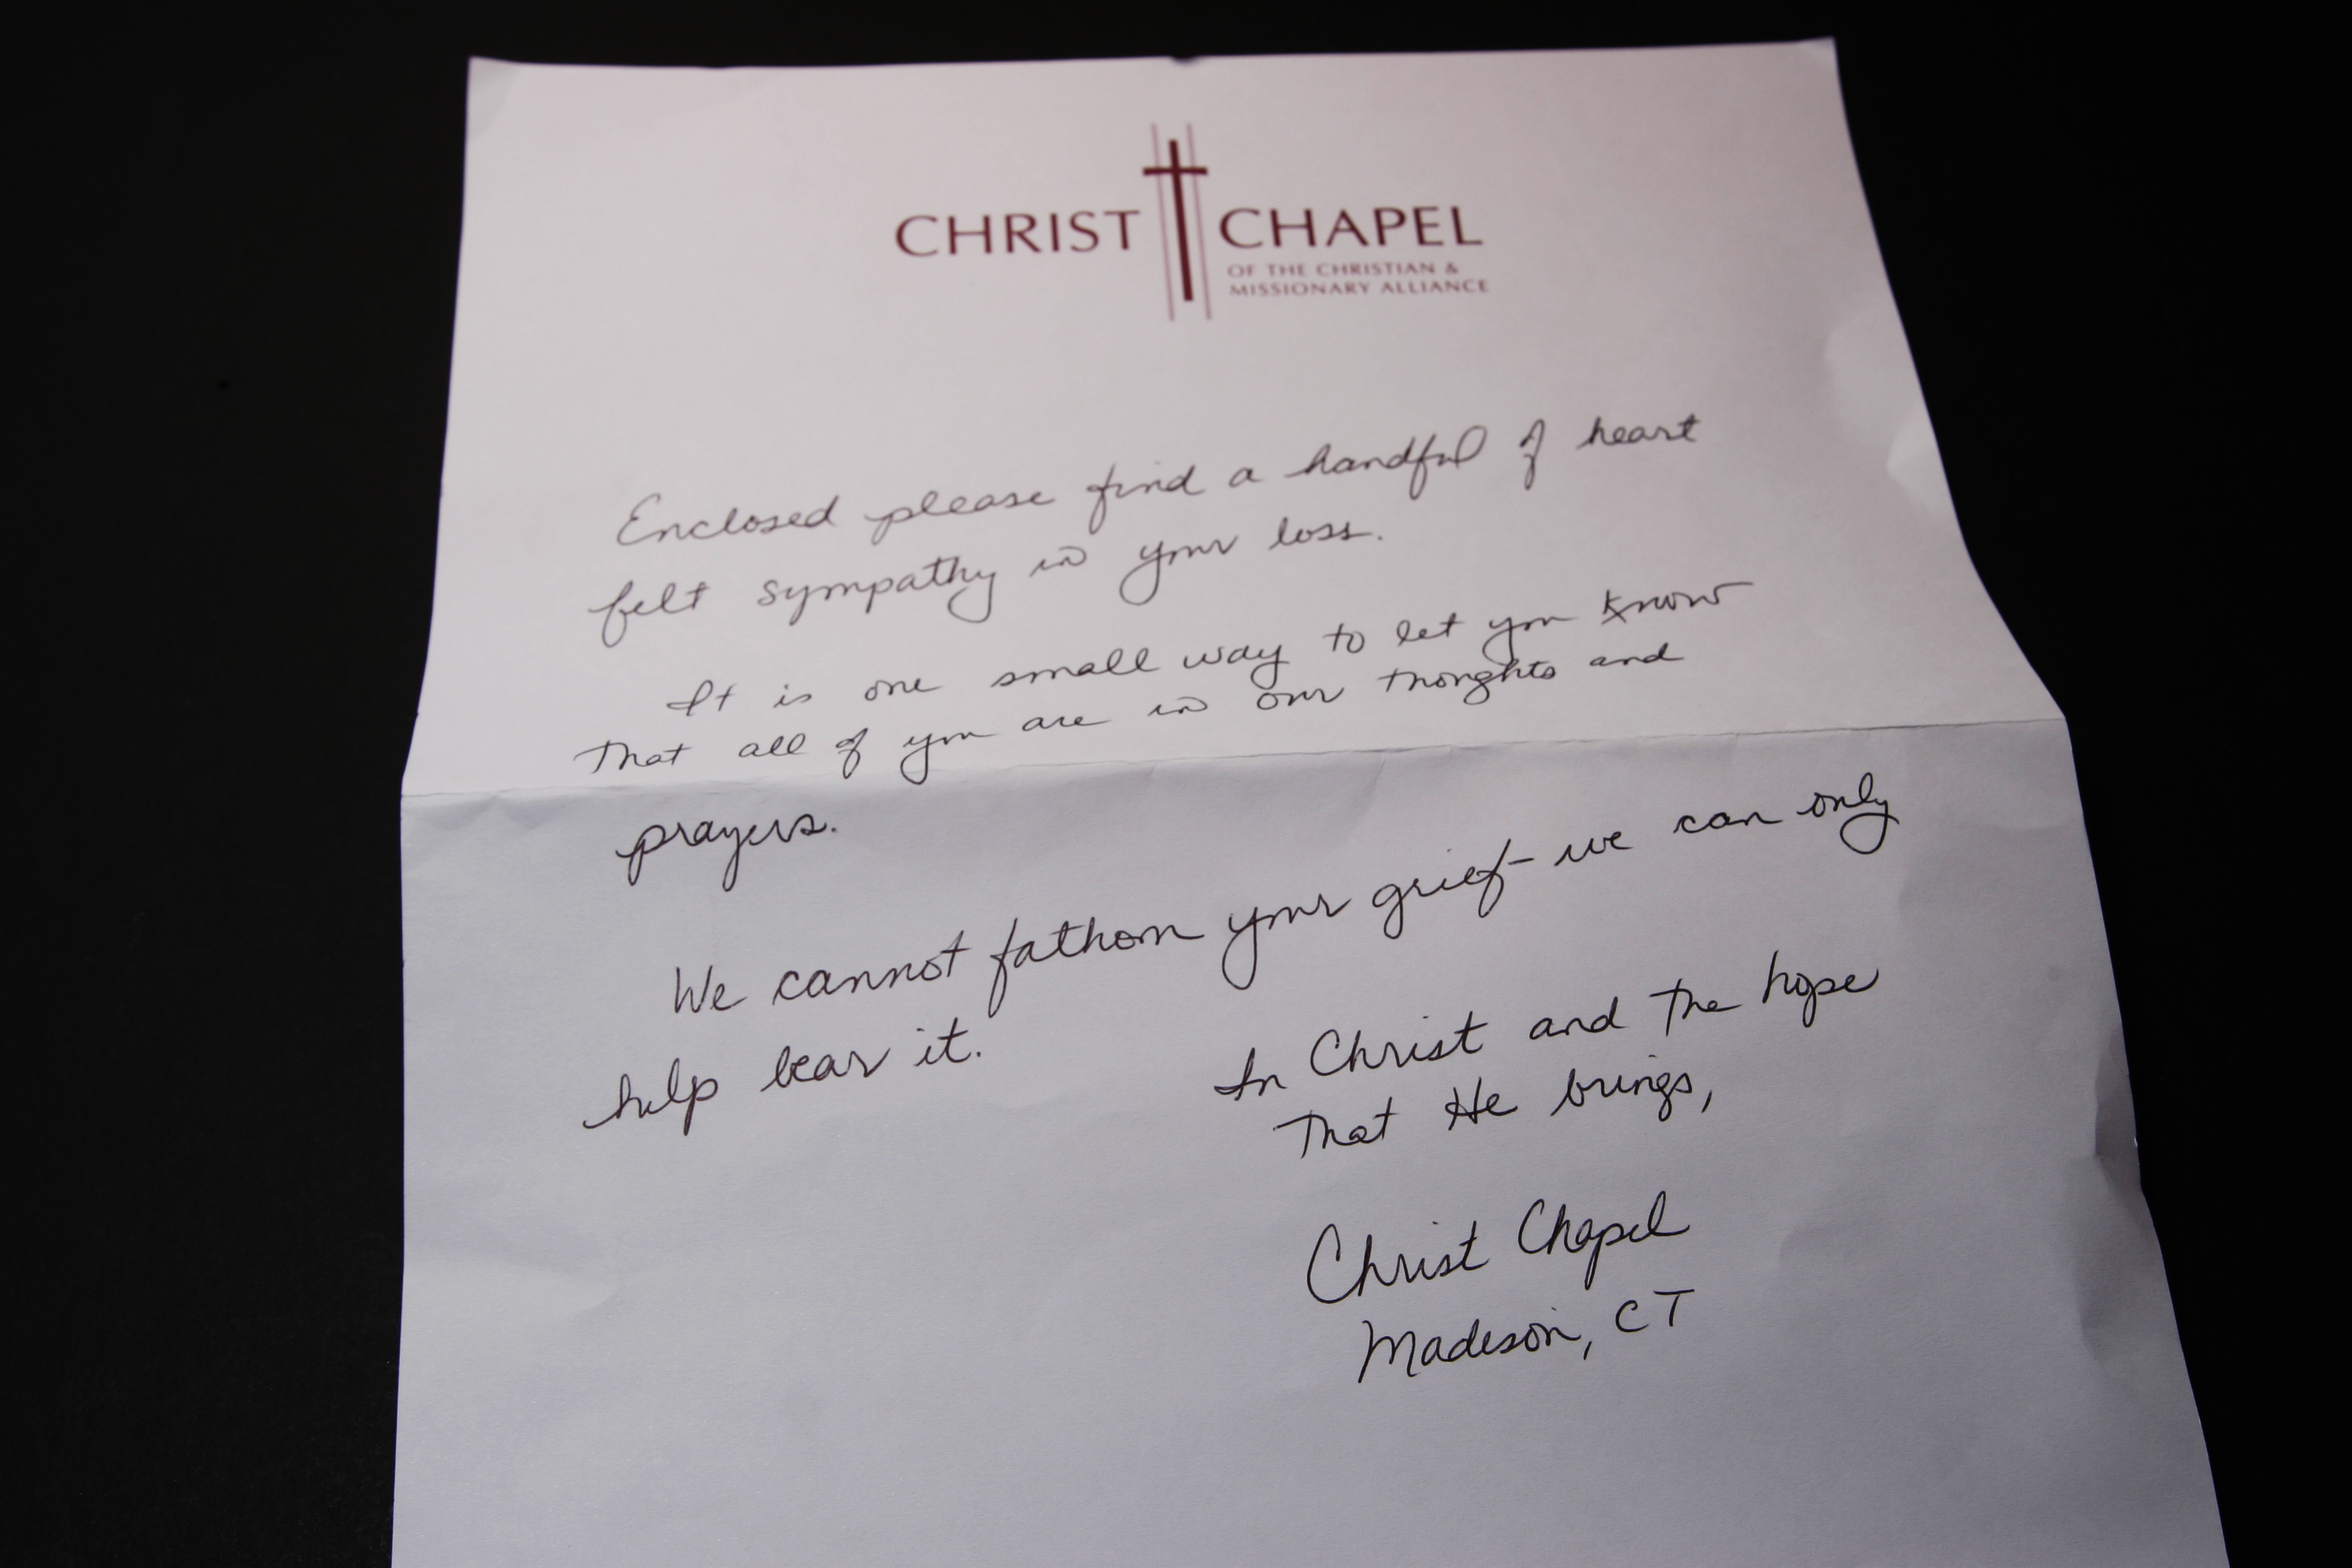 CHRIST CHAPEL
OF THE CHRISTIAN &
MISSIONARY ALLIANCE
Enclosed please find a handful of heart
felt sympathy in your loss.
It is one small way to let you know
that all of you are in our thoughts and
prayers.
We cannot fathom your grief - we can only
help bear it.
In Christ and the hope
that He brings,
Christ Chapel
Madison, CT